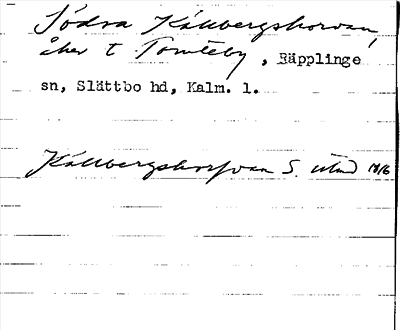 Södra Källbergshorvan,
åker t. Tomteby, Räpplinge
sn, Slättbo hd, Kalm. l.
Källbergshorfvan S. utmd 1816